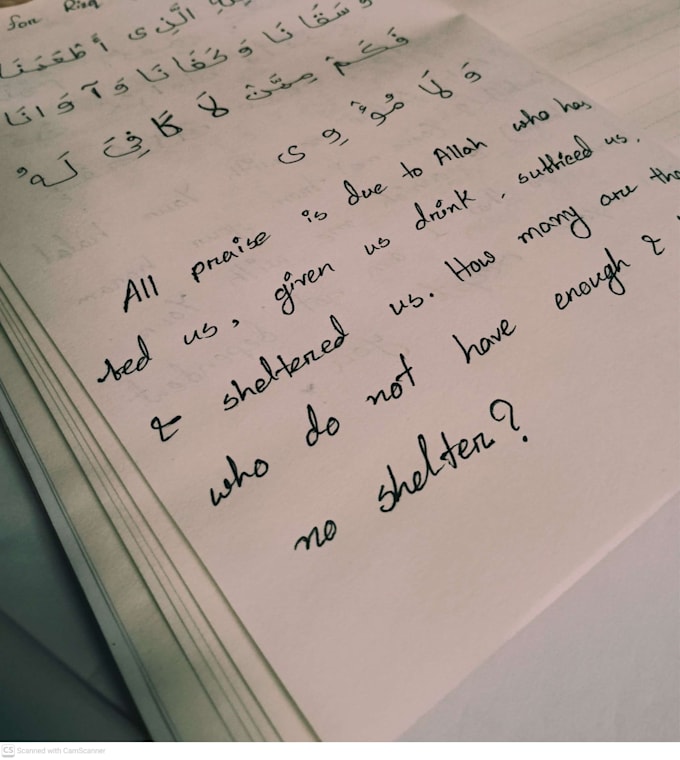 for Rizq
الَّذِى أَطْعَمَنَا
وَسَقَانَا وَكَفَانَا وَآوَانَا
فَكَمْ مِمَّنْ لَا كَافِىَ لَهُ
وَلَا مُؤْوِى
All praise is due to Allah who has
fed us, given us drink, sufficed us,
& sheltered us. How many are
who do not have enough &
no shelter?
CS Scanned with CamScanner